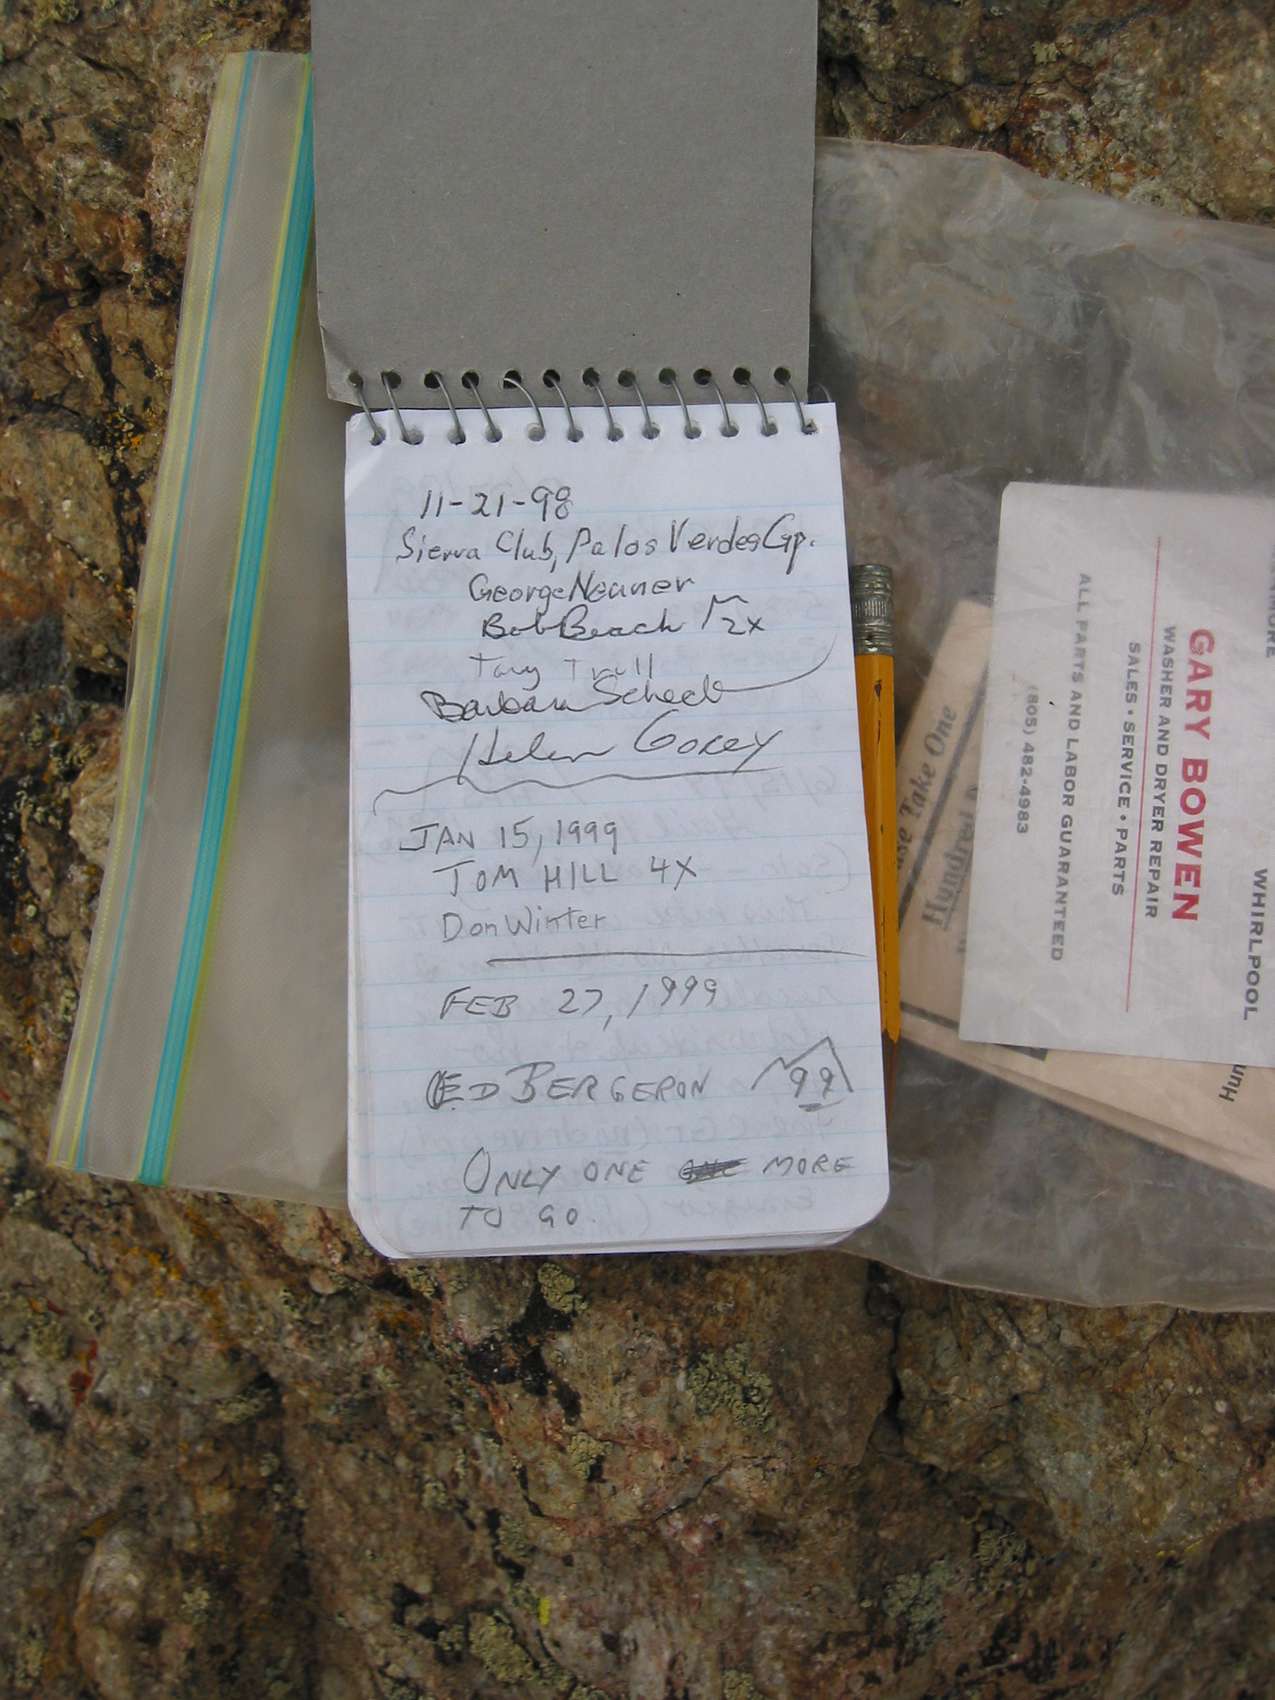 11-21-98
Sierra Club, Palos Verdes Grp.
George Neuner
Bob Beach 2x
Tony Trull
Barbara
Helen Gorey
JAN 15, 1999
TOM HILL 4X
Don Winter
FEB 27, 1999
ED BERGERON 99
ONLY ONE MORE
TO GO.
Take One
Hundred
WHIRLPOOL
GARY BOWEN
WASHER AND DRYER REPAIR
SALES • SERVICE • PARTS
ALL PARTS AND LABOR GUARANTEED
(805) 482-4983